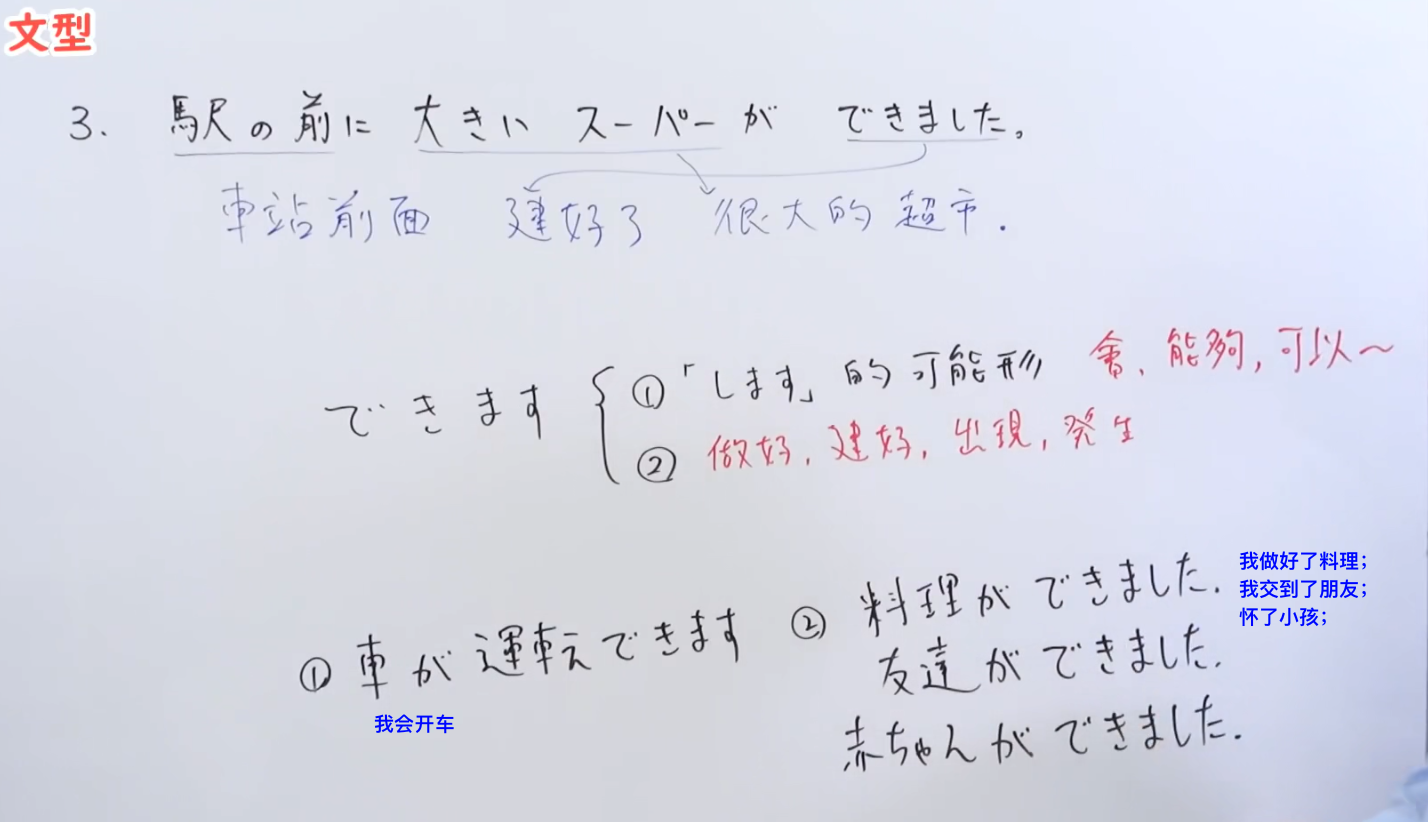 文型
3. 駅の前に 大きい スーパーが できました。
車站前面 建好了 很大的 超市.
できます ①「します」的 可能形 會、能夠,可以～
② 做好,建好,出現,発生
① 車が運転できます ② 料理ができました.
友達ができました.
赤ちゃんができました.
我做好了料理;
我交到了朋友;
怀了小孩;
我会开车